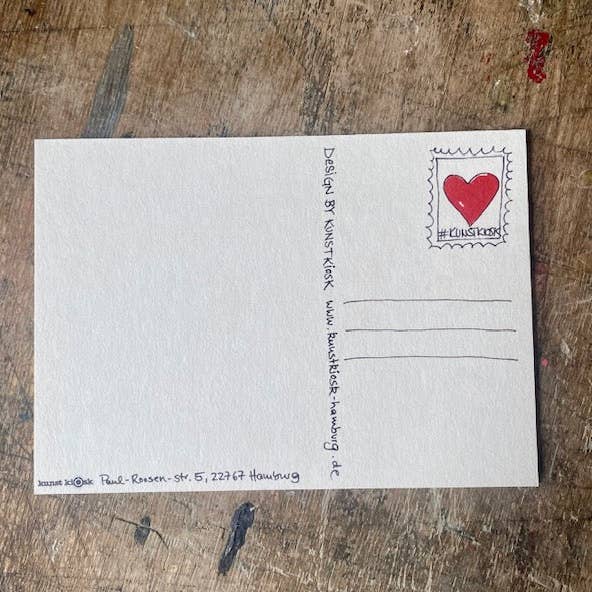 DESIGN BY KUNSTKiOSK www.kunstkiosk-hamburg.de
#KUNSTKIOSK
kunst kiosk Paul-Roosen-str. 5, 22767 Hamburg